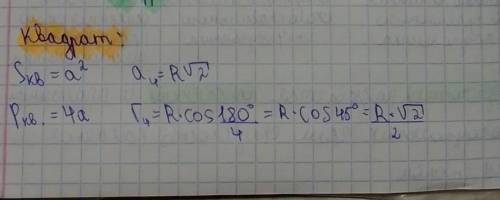 Квадрат:
Sкв = a² a₄ = R√2
Pкв. = 4a r₄ = R·cos 180°/4 = R·cos 45° = R·√2/2